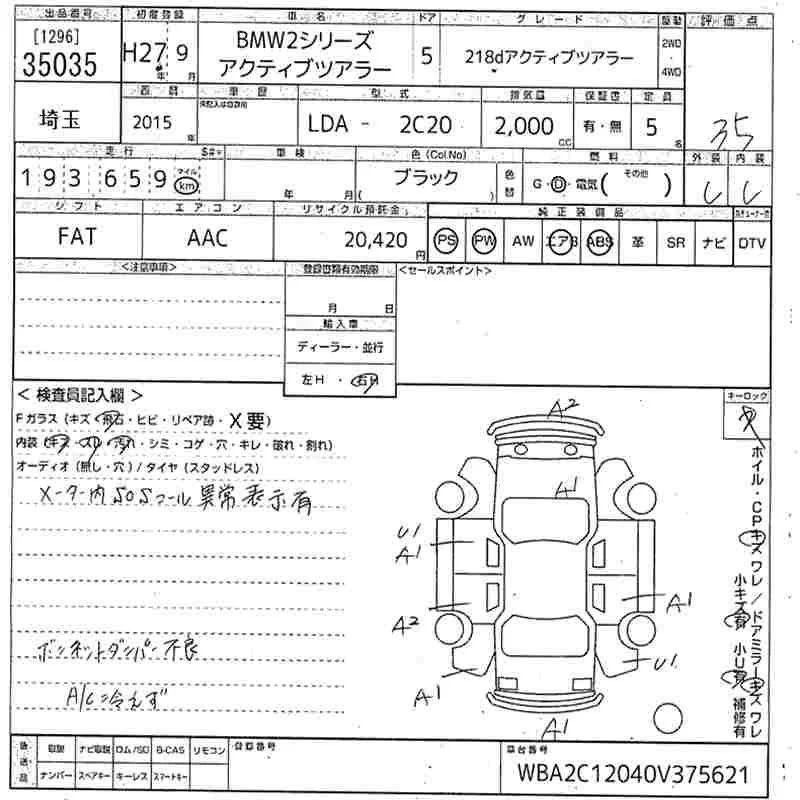 出品番号 初度登録 車名 ドア グレード 駆動 評価点
[1296]
35035
H27 9
年 月
BMW2シリーズ
アクティブツアラー
5
218dアクティブツアラー
2WD
・
4WD
35
西暦 車歴 型式 排気量 保証書 定員
埼玉
2015 年
LDA - 2C20
2,000 CC
有・無
5 名
走行 車検 色(Col.No) 燃料 外装 内装
193,659
マイル
km
年 月
ブラック
( )
色替
G・D・電気( その他 )
シフト エアコン リサイクル預託金 純正装備品
FAT AAC 20,420 円
PS PW AW エアB ABS 革 SR ナビ DTV
<注意事項> 登録書類有効期限 <セールスポイント>
月 日
輸入車
ディーラー・並行
左H ・ 右H
<検査員記入欄>
Fガラス(キズ・飛石・ヒビ・リペア跡・X要)
内装(キズ・スレ・汚れ・シミ・コゲ・穴・キレ・破れ・割れ)
オーディオ(無し・穴)/タイヤ(スタッドレス)
メーター内SOSコール異常表示有
ボンネットダンパー不良
A/C冷えず
キーロック
A2
A1
U1
A1
A2
A1
A1
U1
A1
ホイル・CPキズ ワレ/ドアミラーキズ ワレ
小キズ有 小U有 補修有
後送品
取説 ナビ取説 ロム/SD B-CAS リモコン 登録番号 車台番号
ナンバー スペアキー キーレス スマートキー
WBA2C12040V375621